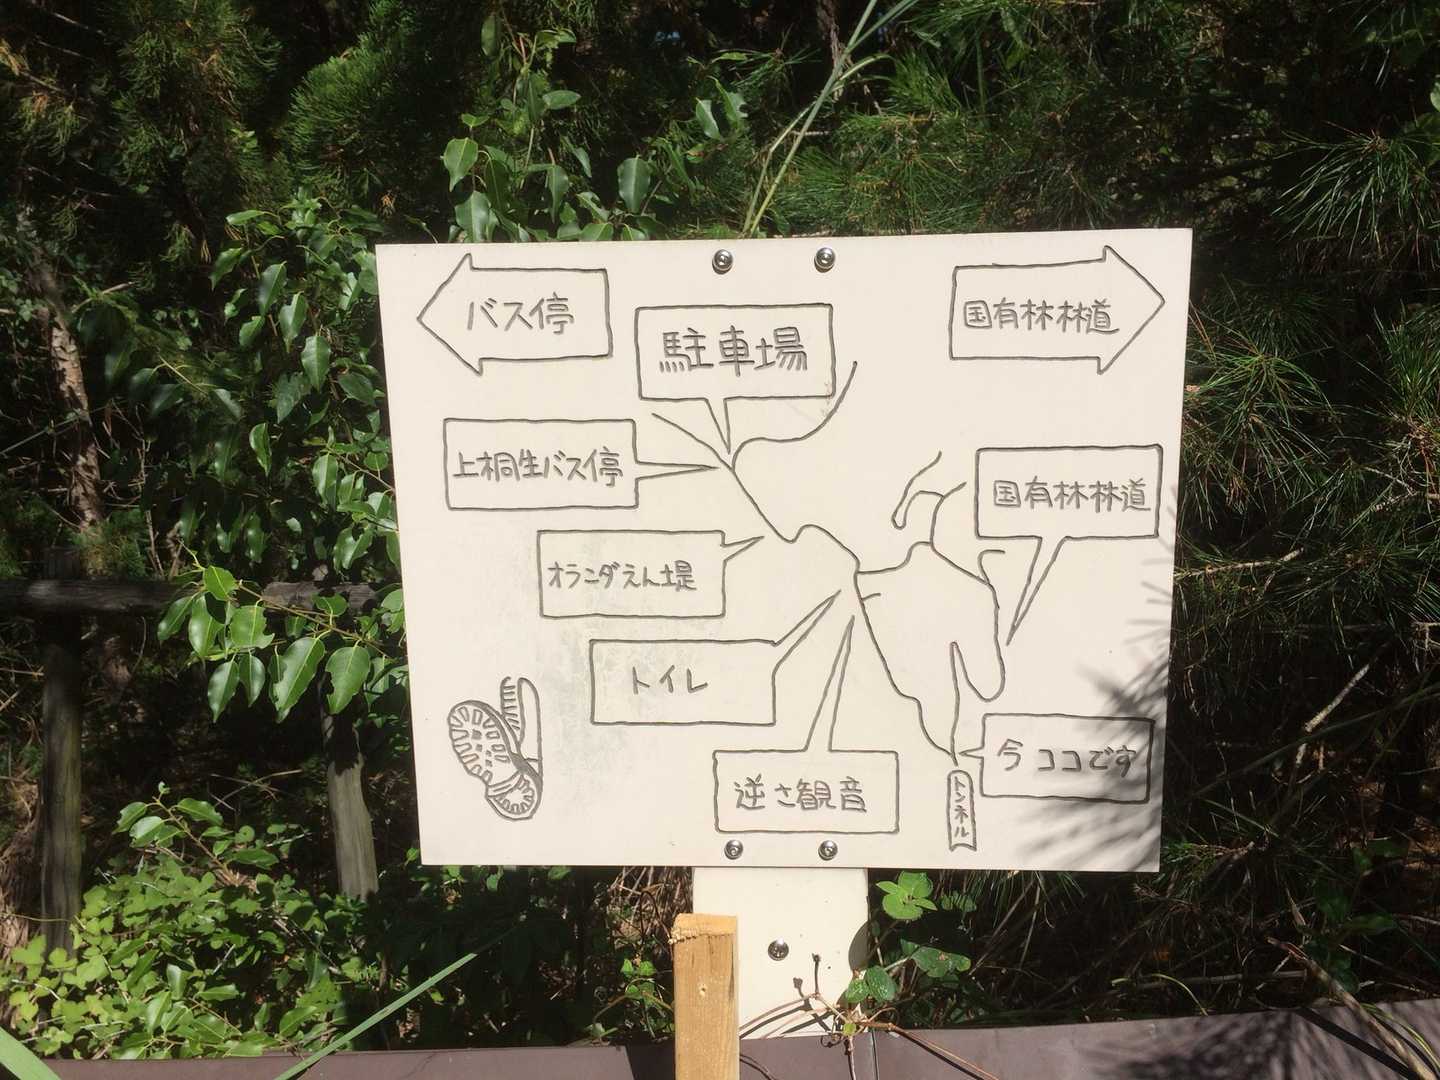 バス停
国有林林道
駐車場
上桐生バス停
国有林林道
オランダえん堤
トイレ
逆さ観音
今ココです
トンネル